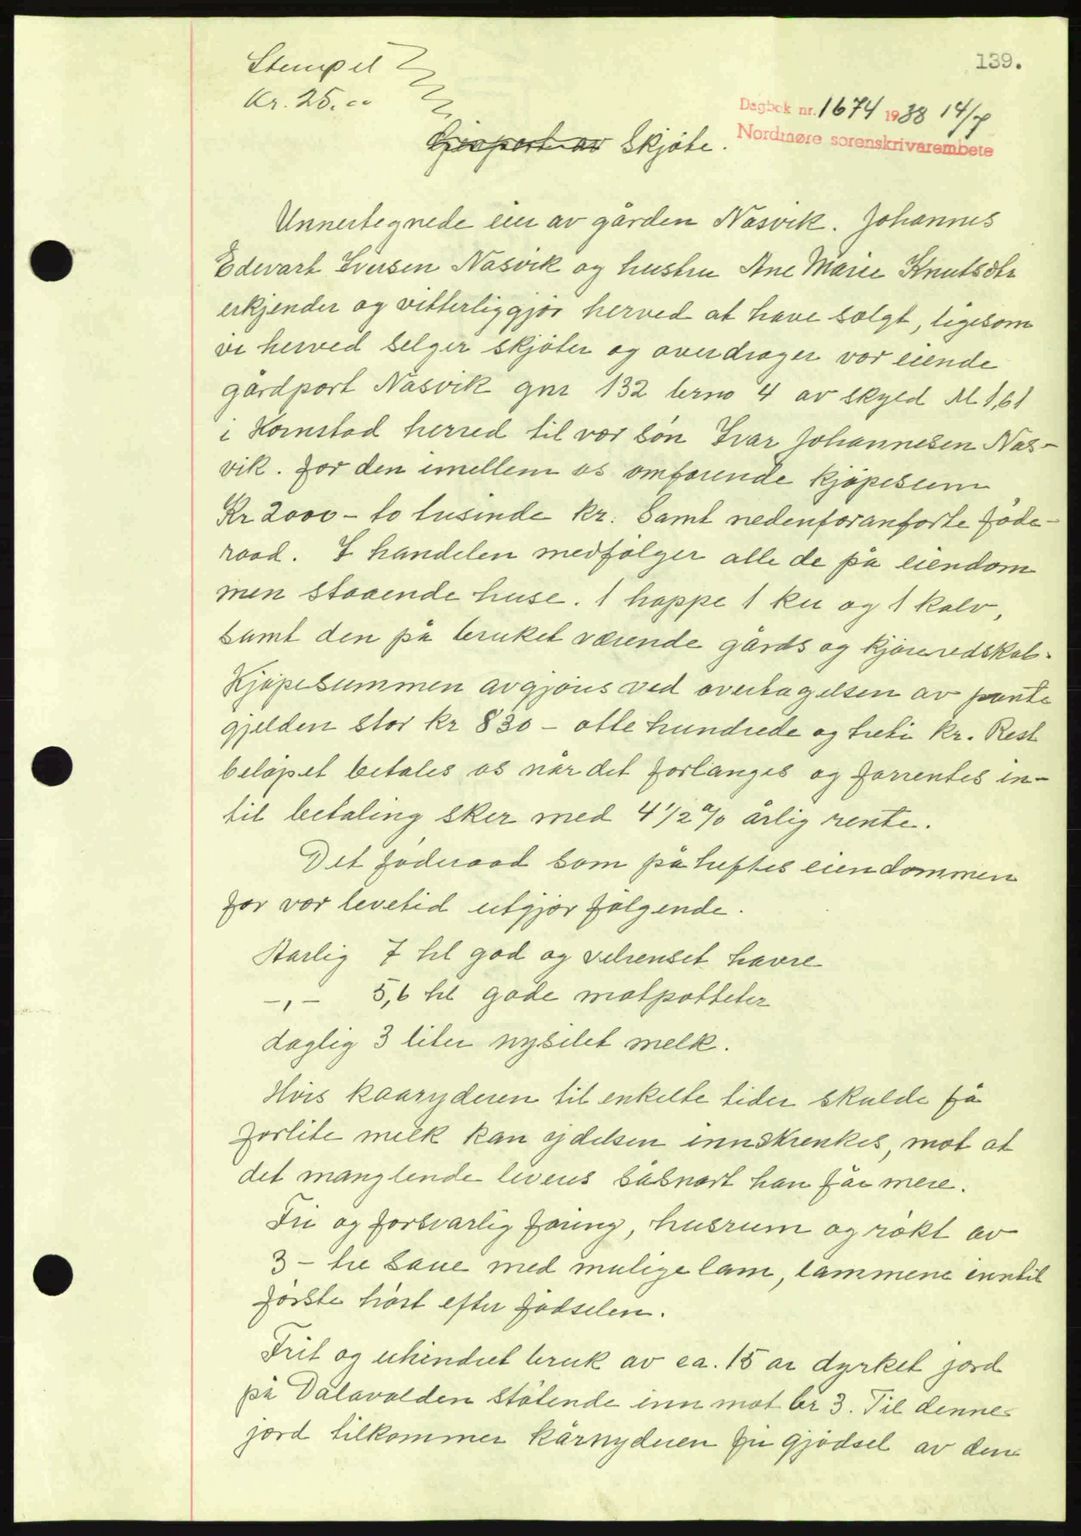 139.
Stempel
Kr. 25.00
Dagbok nr. 1674 1938 14/7
Nordmøre sorenskrivarembete
Gjenpart av Skjøte.
Unnertegnede eier av gården Nasvik. Johannes
Edevart Iversen Nasvik og hustru Ane Marie Knutsdtr
erkjender og vitterliggjør herved at have solgt, ligesom
vi herved selger skjøter og overdrager vor eiende
gårdpart Nasvik gnr 132 brno 4 av skyld M 1,61
i Kornstad herred til vor søn Ivar Johannesen Nas-
vik. for den imellem os omforende kjøpesum
Kr 2000 - to tusinde kr. Samt nedenforanførte føde-
raad. I handelen medfølger alle de på eiendom
men staaende huse. 1 hoppe 1 ku og 1 kalv,
samt den på bruket værende gårds og kjøreredskab.
Kjøpesummen avgjøres ved overtagelsen av pante
gjelden stor kr 830 - otte hundrede og treti kr. Rest
beløpet betales os når det forlanges og forrentes in-
til betaling sker med 4 1/2 % årlig rente.
Det føderaad som påheftes eiendommen
for vor levetid utgjør følgende.
Aarlig 7 hl god og velrenset havre
-,- 5,6 hl gode matpotteter
daglig 3 liter nysilet melk.
Hvis kaaryderen til enkelte tider skulde få
forlite melk kan ydelsen innskrenkes, mot at
det manglende leveres såsnart han får mere.
Fri og forsvarlig foring, husrum og røkt av
3 - tre saue med mulige lam, lammene inntil
første høst efter fødselen.
Frit og uhindret bruk av ca. 15 ar dyrket jord
på Dalavolden støtende inn mot br 3. Til denne
jord tilkommer kårnyderen fri gjødsel av den